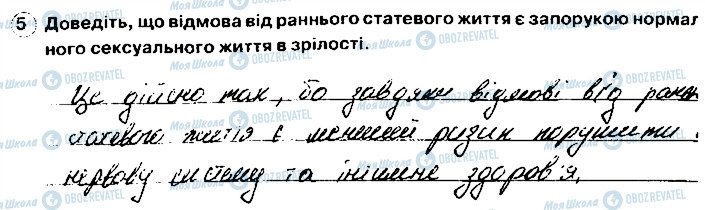 5 Доведіть, що відмова від раннього статевого життя є запорукою нормал
ного сексуального життя в зрілості.
Це дійсно так, бо завдяки відмові від раннь
статевого життя є менший ризик порушити
нервову систему та інтимне здоров'я.
МояШкола OBOZREVATEL